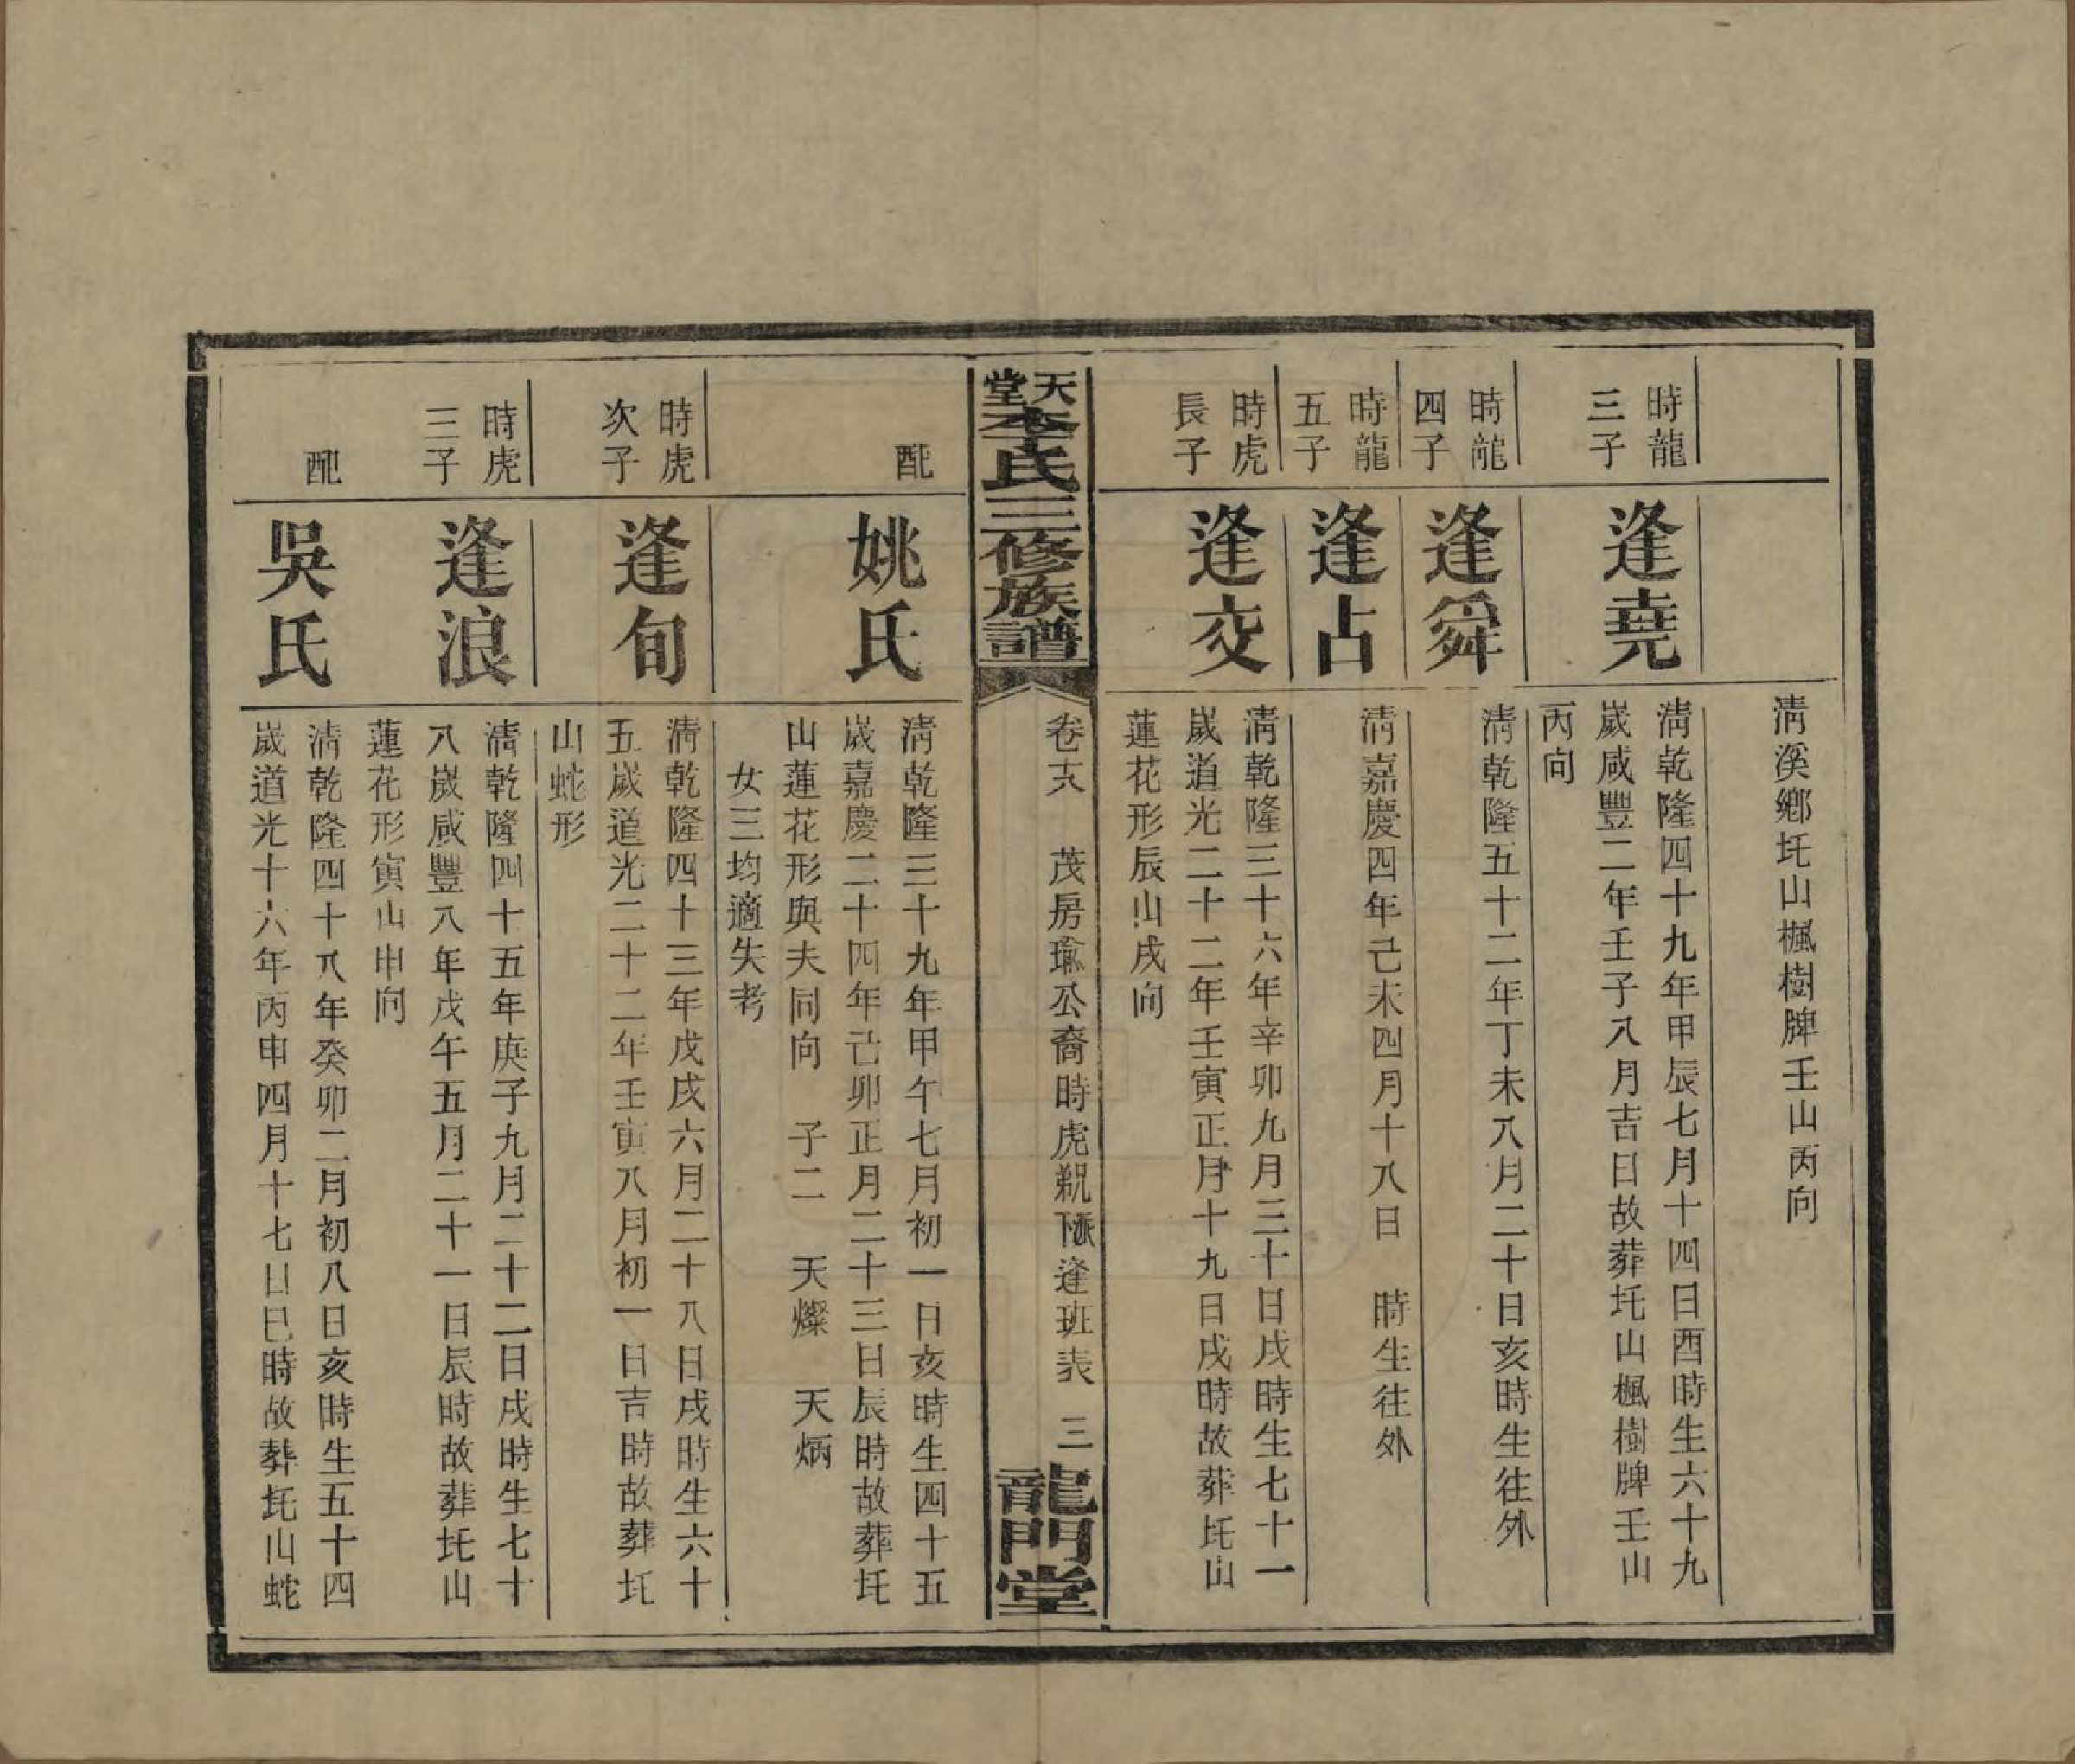 清溪鄉圫山楓樹牌壬山丙向
時龍
三子
逢堯
清乾隆四十九年甲辰七月十四日酉時生六十九
歲咸豐二年壬子八月吉日故葬圫山楓樹牌壬山
丙向
時龍
四子
逢舜
清乾隆五十二年丁未八月二十日亥時生往外
時龍
五子
逢占
清嘉慶四年己未四月十八日 時生往外
時虎
長子
逢交
清乾隆三十六年辛卯九月三十日戌時生七十一
歲道光二十二年壬寅正月十九日戌時故葬圫山
蓮花形辰山戌向
天堂李氏三修族譜
卷十八 茂房瑜公裔時虎 逢班表 三
龍門堂
配
姚氏
清乾隆三十九年甲午七月初一日亥時生四十五
歲嘉慶二十四年己卯正月二十三日辰時故葬圫
山蓮花形與夫同向 子二 天燦 天炳
女三均適失考
時虎
次子
逢旬
清乾隆四十三年戊戌六月二十八日戌時生六十
五歲道光二十二年壬寅八月初一日吉時故葬圫
山蛇形
時虎
三子
逢浪
清乾隆四十五年庚子九月二十二日戌時生七十
八歲咸豐八年戊午五月二十一日辰時故葬圫山
蓮花形寅山申向
配
吳氏
清乾隆四十八年癸卯二月初八日亥時生五十四
歲道光十六年丙申四月十七日巳時故葬圫山蛇